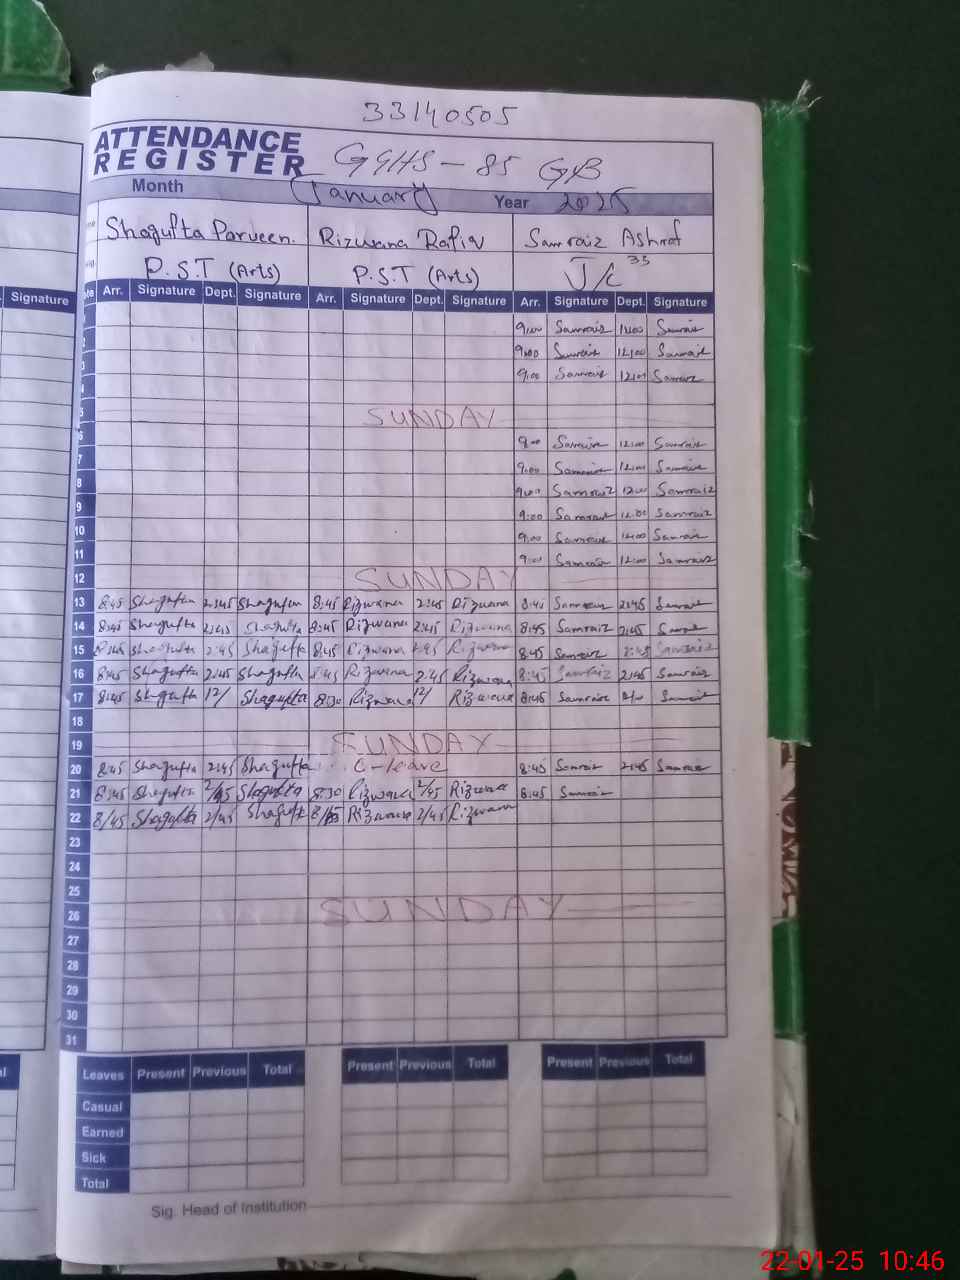 33140505
ATTENDANCE
REGISTER GGHS - 85 GB
Month January Year 2025
Shagufta Parveen. Rizwana Rafiq Samraiz Ashraf
P.S.T (Arts) P.S.T (Arts) J/C 33
Signature Arr. Signature Dept. Signature Arr. Signature Dept. Signature Arr. Signature Dept. Signature
9:00 Samraiz 12:00 Samraiz
2 9:00 Samraiz 12:00 Samraiz
3 9:00 Samraiz 12:00 Samraiz
4
5 SUNDAY
6 9:00 Samraiz 12:00 Samraiz
7 9:00 Samraiz 12:00 Samraiz
8 9:00 Samraiz 12:00 Samraiz
9 9:00 Samraiz 12:00 Samraiz
10 9:00 Samraiz 12:00 Samraiz
11 9:00 Samraiz 12:00 Samraiz
12 SUNDAY
13 8:45 Shagufta 2:45 Shagufta 8:45 Rizwana 2:45 Rizwana 8:45 Samraiz 2:45 Samraiz
14 8:45 Shagufta 2:45 Shagufta 8:45 Rizwana 2:45 Rizwana 8:45 Samraiz 2:45 Samraiz
15 8:45 Shagufta 2:45 Shagufta 8:45 Rizwana 2:45 Rizwana 8:45 Samraiz 2:45 Samraiz
16 8:45 Shagufta 2:45 Shagufta 8:45 Rizwana 2:45 Rizwana 8:45 Samraiz 2:45 Samraiz
17 8:45 Shagufta 12/ Shagufta 8:30 Rizwana 12/ Rizwana 8:45 Samraiz Samraiz
18
19 SUNDAY
20 8:45 Shagufta 2:45 Shagufta C-leave 8:45 Samraiz 2:45 Samraiz
21 8:45 Shagufta 2/45 Shagufta 8:30 Rizwana 2/45 Rizwana 8:45 Samraiz
22 8/45 Shagufta 2/45 Shagufta 8/45 Rizwana 2/45 Rizwana
23
24
25
26 SUNDAY
27
28
29
30
31
Leaves Present Previous Total Present Previous Total Present Previous Total
Casual
Earned
Sick
Total
Sig. Head of Institution
22-01-25 10:46